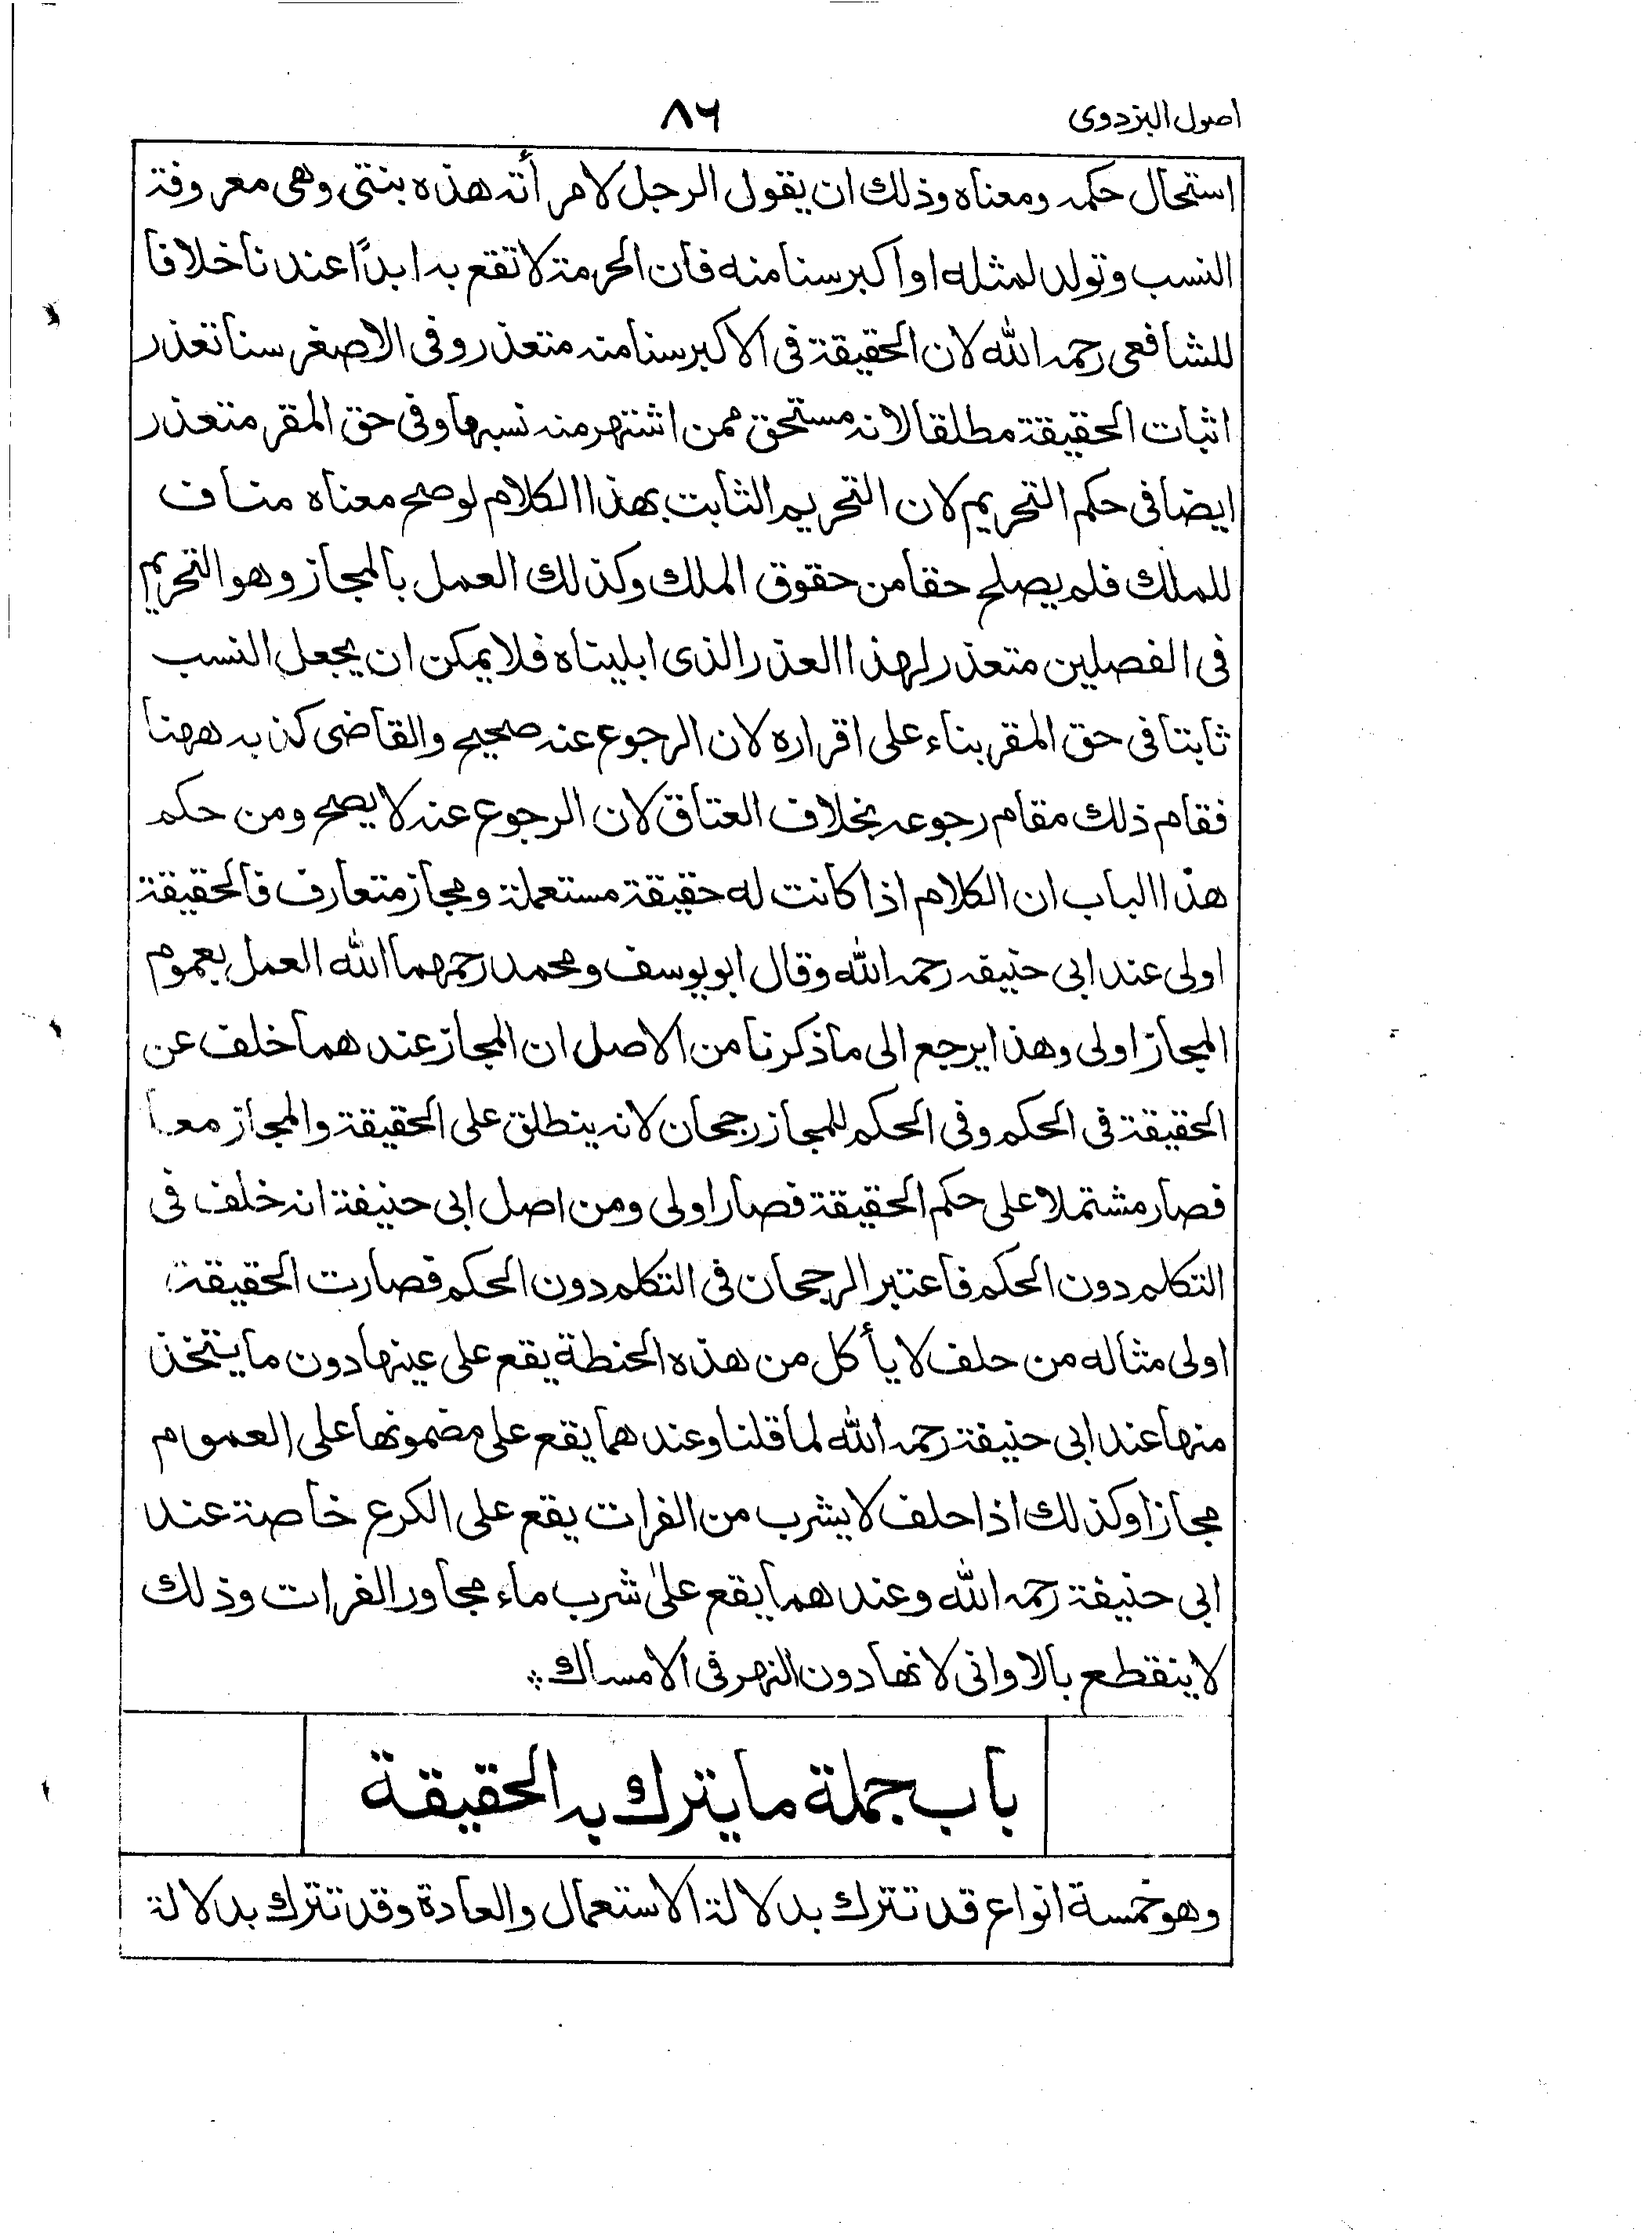 اصول البزدوی
۸۶
استحال حكمه ومعناه وذلك ان يقول الرجل لامرأته هذه بنتى وهى معروفة
النسب وتولد لمثله او اكبر سنا منه فان الحرمة لا تقع به ابدًا عندنا خلافا
للشافعى رحمه الله لان الحقيقة فى الاكبر سنا منه متعذر وفى الاصغر سنا تعذر
اثبات الحقيقة مطلقا لانه مستحق ممن اشتهر منه نسبها وفى حق المقر متعذر
ايضا فى حكم التحريم لان التحريم الثابت بهذا الكلام لو صح معناه مناف
للملك فلم يصلح حقا من حقوق الملك وكذلك العمل بالمجاز وهو التحريم
فى الفصلين متعذر لهذا العذر الذى ابليناه فلا يمكن ان يجعل النسب
ثابتا فى حق المقر بناء على اقراره لان الرجوع عنه صحيح والقاضى كذبه ههنا
فقام ذلك مقام رجوعه بخلاف العتاق لان الرجوع عنه لا يصح ومن حكم
هذا الباب ان الكلام اذا كانت له حقيقة مستعملة ومجاز متعارف فالحقيقة
اولى عند ابى حنيفه رحمه الله وقال ابو يوسف ومحمد رحمهما الله العمل بعموم
المجاز اولى وهذا يرجع الى ما ذكرنا من الاصل ان المجاز عندهما خلف عن
الحقيقة فى الحكم وفى الحكم للمجاز رجحان لانه ينطلق على الحقيقة والمجاز معا
فصار مشتملا على حكم الحقيقة فصار اولى ومن اصل ابى حنيفة انه خلف فى
التكلم دون الحكم فاعتبر الرجحان فى التكلم دون الحكم فصارت الحقيقة
اولى مثاله من حلف لا يأكل من هذه الحنطة يقع على عينها دون ما يتخذ
منها عند ابى حنيفة رحمه الله لما قلنا وعندهما يقع على مضمونها على العموم
مجازا وكذلك اذا حلف لا يشرب من الفرات يقع على الكرع خاصة عند
ابى حنيفة رحمه الله وعندهما يقع علىٰ شرب ماء مجاور الفرات وذلك
لا ينقطع بالاوانى لانها دون النهر فى الامساك ؞
باب جملة ما يترك به الحقيقة
وهو خمسة انواع قد تترك بدلالة الاستعمال والعادة وقد تترك بدلالة